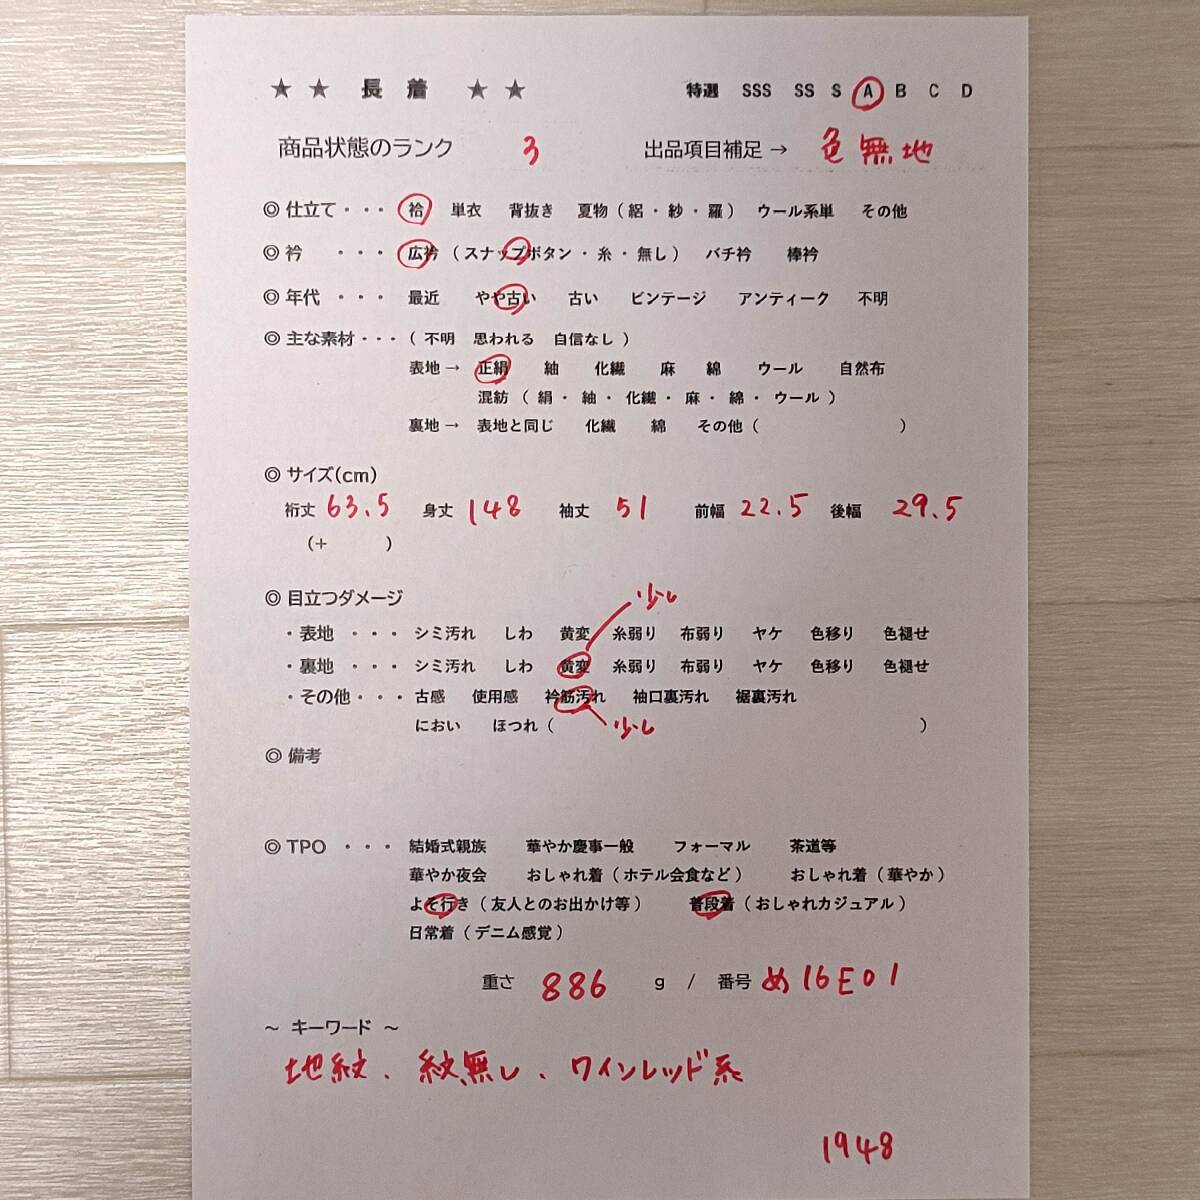 ★ ★ 長 着 ★ ★ 特選 SSS SS S A B C D
商品状態のランク 3 出品項目補足 → 色無地
◎ 仕立て・・・ 袷 単衣 背抜き 夏物（ 絽 ・ 紗 ・ 羅 ） ウール系単 その他
◎ 衿 ・・・ 広衿 （ スナップボタン ・ 糸 ・ 無し ） バチ衿 棒衿
◎ 年代 ・・・ 最近 やや古い 古い ビンテージ アンティーク 不明
◎ 主な素材・・・（ 不明 思われる 自信なし ）
表地 → 正絹 紬 化繊 麻 綿 ウール 自然布
混紡 （ 絹 ・ 紬 ・ 化繊 ・ 麻 ・ 綿 ・ ウール ）
裏地 → 表地と同じ 化繊 綿 その他（ ）
◎ サイズ(cm)
裄丈 63.5 身丈 148 袖丈 51 前幅 22.5 後幅 29.5
（+ ）
◎ 目立つダメージ 少し
・表地 ・・・ シミ汚れ しわ 黄変 糸弱り 布弱り ヤケ 色移り 色褪せ
・裏地 ・・・ シミ汚れ しわ 黄変 糸弱り 布弱り ヤケ 色移り 色褪せ
・その他・・・ 古感 使用感 衿筋汚れ 袖口裏汚れ 裾裏汚れ
におい ほつれ（ 少し ）
◎ 備考
◎ TPO ・・・ 結婚式親族 華やか慶事一般 フォーマル 茶道等
華やか夜会 おしゃれ着（ ホテル会食など ） おしゃれ着（ 華やか ）
よそ行き（ 友人とのお出かけ等 ） 普段着（ おしゃれカジュアル ）
日常着（ デニム感覚 ）
重さ 886 g / 番号 め16E01
～ キーワード ～
地紋、紋無し、ワインレッド系
1948